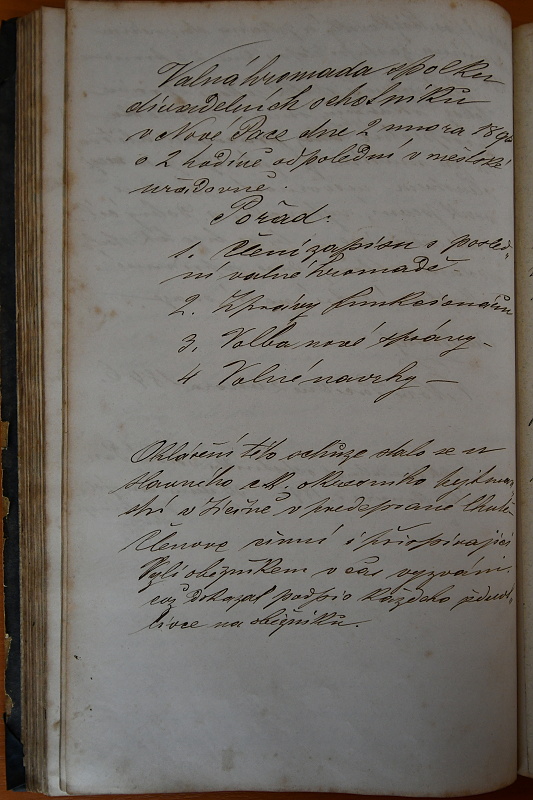 Valná hromada spolku
divadelních ochotníků
v Nové Pace dne 2 unora 189
o 2 hodině odpolední v městské
uřadovně.
Pořad:
1. Čtení zapisu o posled-
ní valné hromadě.
2. Zprávy funkcionářů
3. Volba nové správy —
4 Volné navrhy —
Ohlášení této schůze stalo se u
slavného c. k. okresního hejtman-
ství v Jičíně v předepsané lhutě.
Členové činní i přispívající
byli oběžníkem v čas vyzváni
což dokazal podpis každeho jednot-
livce na oběžníku.